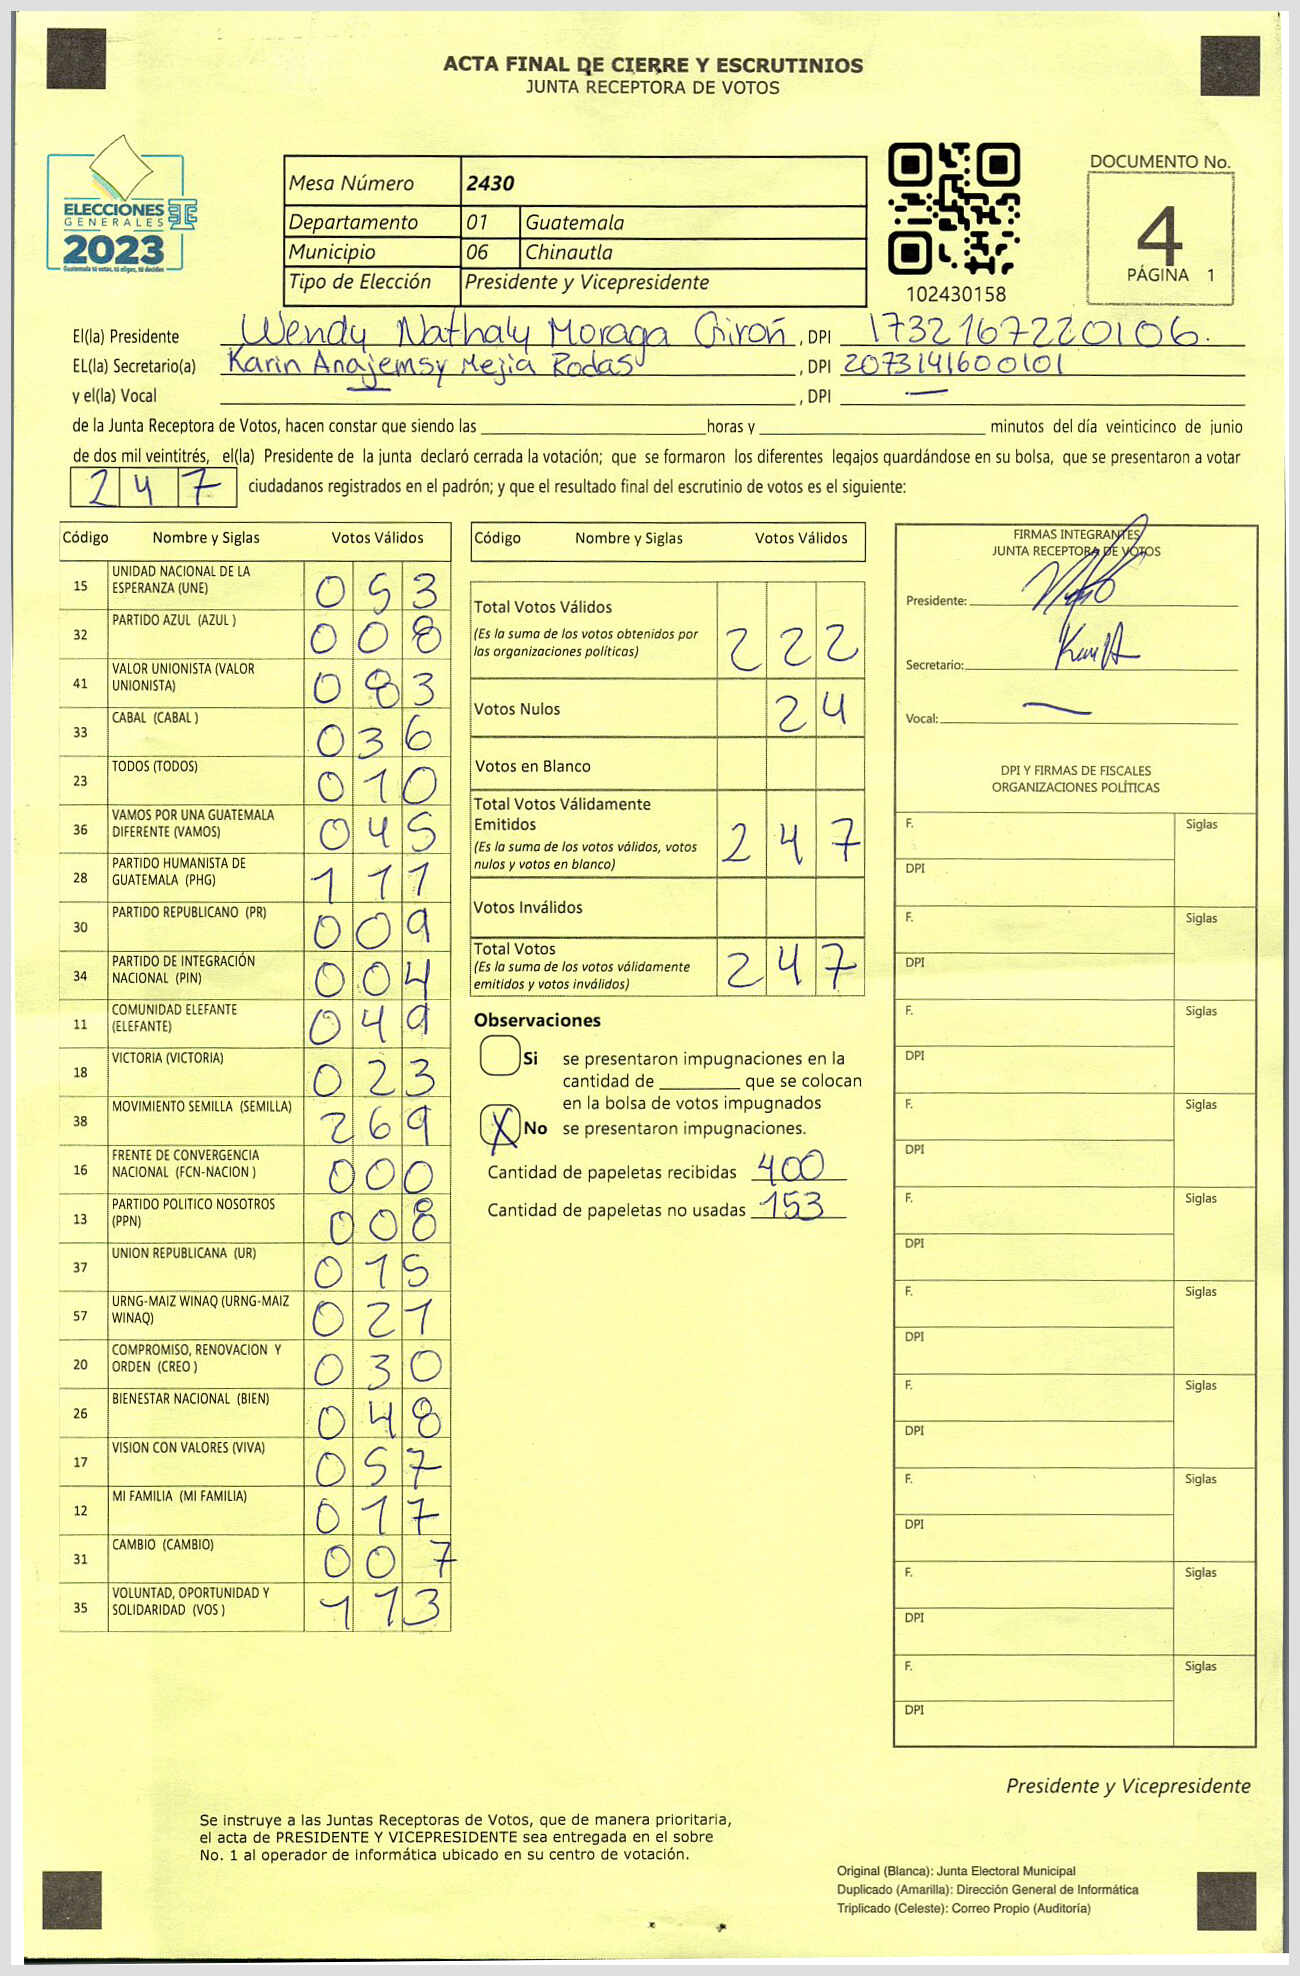 ACTA FINAL DE CIERRE Y ESCRUTINIOS
JUNTA RECEPTORA DE VOTOS
ELECCIONES
GENERALES
2023
Guatemala tú votas, tú eliges, tú decides
Mesa Número 2430
Departamento 01 Guatemala
Municipio 06 Chinautla
Tipo de Elección Presidente y Vicepresidente
102430158
DOCUMENTO No.
4
PÁGINA 1
El(la) Presidente Wendy Nathaly Moraga Giron, DPI 1732167220106.
EL(la) Secretario(a) Karin Anajemsy Mejia Rodas, DPI 2073141600101
y el(la) Vocal —, DPI —
de la Junta Receptora de Votos, hacen constar que siendo las horas y minutos del día veinticinco de junio
de dos mil veintitrés, el(la) Presidente de la junta declaró cerrada la votación; que se formaron los diferentes legajos guardándose en su bolsa, que se presentaron a votar
247 ciudadanos registrados en el padrón; y que el resultado final del escrutinio de votos es el siguiente:
Código Nombre y Siglas Votos Válidos
15 UNIDAD NACIONAL DE LA ESPERANZA (UNE) 053
32 PARTIDO AZUL (AZUL ) 008
41 VALOR UNIONISTA (VALOR UNIONISTA) 083
33 CABAL (CABAL ) 036
23 TODOS (TODOS) 010
36 VAMOS POR UNA GUATEMALA DIFERENTE (VAMOS) 045
28 PARTIDO HUMANISTA DE GUATEMALA (PHG) 111
30 PARTIDO REPUBLICANO (PR) 009
34 PARTIDO DE INTEGRACIÓN NACIONAL (PIN) 004
11 COMUNIDAD ELEFANTE (ELEFANTE) 049
18 VICTORIA (VICTORIA) 023
38 MOVIMIENTO SEMILLA (SEMILLA) 269
16 FRENTE DE CONVERGENCIA NACIONAL (FCN-NACION ) 000
13 PARTIDO POLITICO NOSOTROS (PPN) 008
37 UNION REPUBLICANA (UR) 015
57 URNG-MAIZ WINAQ (URNG-MAIZ WINAQ) 021
20 COMPROMISO, RENOVACION Y ORDEN (CREO ) 030
26 BIENESTAR NACIONAL (BIEN) 048
17 VISION CON VALORES (VIVA) 057
12 MI FAMILIA (MI FAMILIA) 017
31 CAMBIO (CAMBIO) 007
35 VOLUNTAD, OPORTUNIDAD Y SOLIDARIDAD (VOS ) 113
Código Nombre y Siglas Votos Válidos
Total Votos Válidos 222
(Es la suma de los votos obtenidos por
las organizaciones políticas)
Votos Nulos 24
Votos en Blanco
Total Votos Válidamente
Emitidos 247
(Es la suma de los votos válidos, votos
nulos y votos en blanco)
Votos Inválidos
Total Votos 247
(Es la suma de los votos válidamente
emitidos y votos inválidos)
Observaciones
Si se presentaron impugnaciones en la
cantidad de ________ que se colocan
en la bolsa de votos impugnados
X No se presentaron impugnaciones.
Cantidad de papeletas recibidas 400
Cantidad de papeletas no usadas 153
FIRMAS INTEGRANTES
JUNTA RECEPTORA DE VOTOS
Presidente:
Secretario:
Vocal: —
DPI Y FIRMAS DE FISCALES
ORGANIZACIONES POLÍTICAS
F. Siglas
DPI
F. Siglas
DPI
F. Siglas
DPI
F. Siglas
DPI
F. Siglas
DPI
F. Siglas
DPI
F. Siglas
DPI
F. Siglas
DPI
F. Siglas
DPI
F. Siglas
DPI
Presidente y Vicepresidente
Se instruye a las Juntas Receptoras de Votos, que de manera prioritaria,
el acta de PRESIDENTE Y VICEPRESIDENTE sea entregada en el sobre
No. 1 al operador de informática ubicado en su centro de votación.
Original (Blanca): Junta Electoral Municipal
Duplicado (Amarilla): Dirección General de Informática
Triplicado (Celeste): Correo Propio (Auditoría)